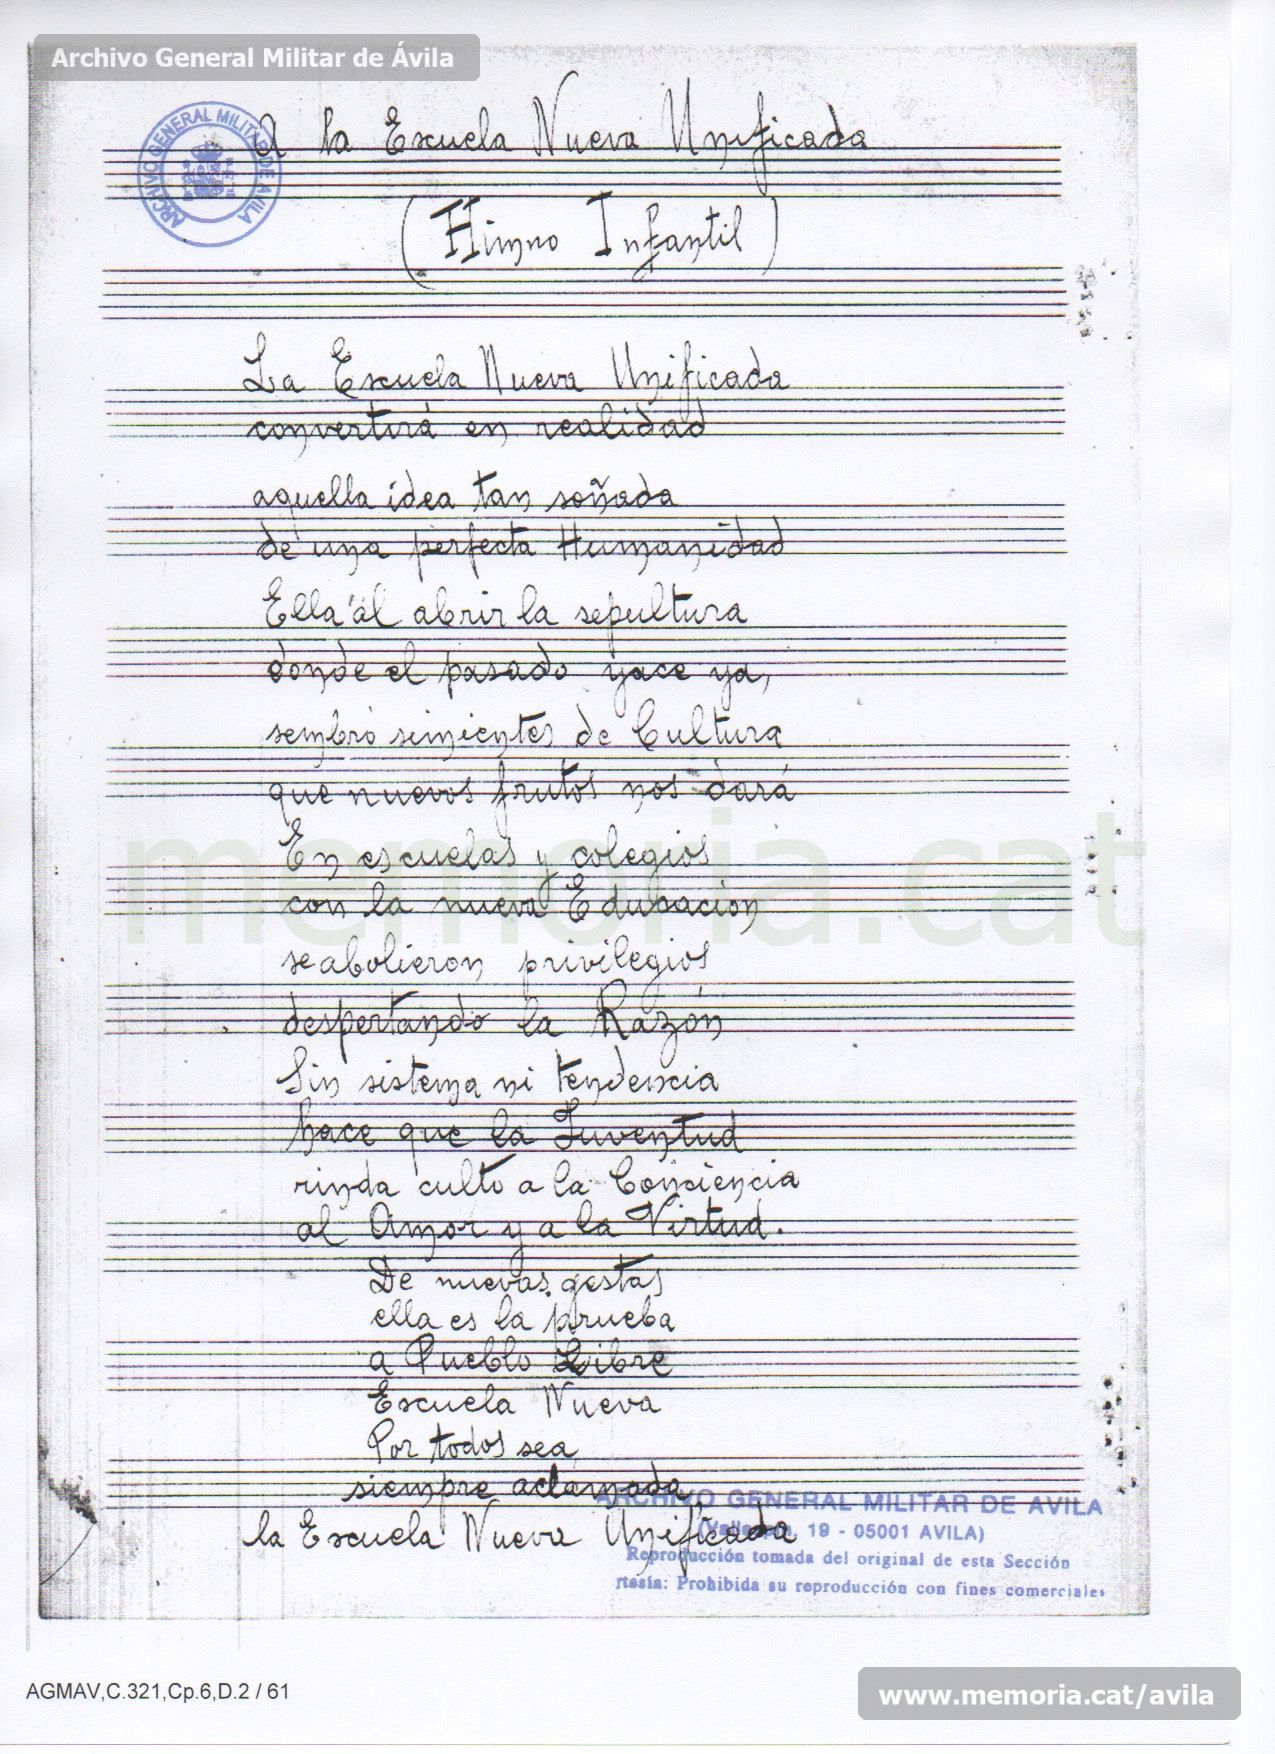 Archivo General Militar de Ávila
ARCHIVO GENERAL MILITAR DE AVILA
A la Escuela Nueva Unificada
(Himno Infantil)
La Escuela Nueva Unificada
convertirá en realidad
aquella idea tan soñada
de una perfecta Humanidad
Ella al abrir la sepultura
donde el pasado yace ya,
sembró simientes de Cultura
que nuevos frutos nos dará
En escuelas y colegios
con la nueva Educación
se abolieron privilegios
despertando la Razón
Sin sistema ni tendencia
hace que la Juventud
rinda culto a la Conciencia
al Amor y a la Virtud.
De nuevas gestas
ella es la prueba
a Pueblo Libre
Escuela Nueva
Por todos sea
siempre aclamada
la Escuela Nueva Unificada
ARCHIVO GENERAL MILITAR DE AVILA
19 - 05001 AVILA)
Reproducción tomada del original de esta Sección
rtesía: Prohibida su reproducción con fines comerciales
memoria.cat
AGMAV,C.321,Cp.6,D.2 / 61
www.memoria.cat/avila